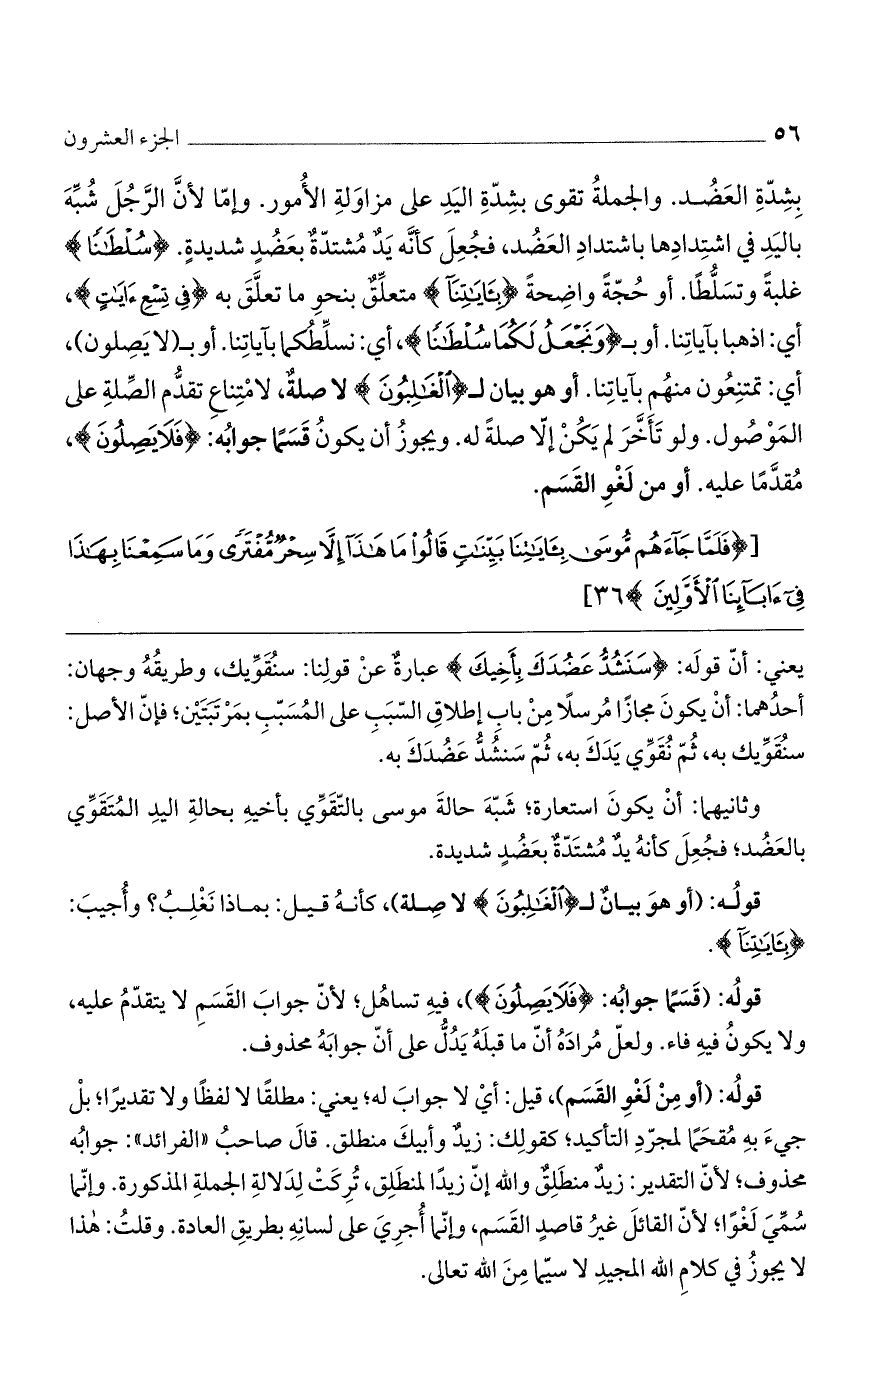 ٥٦ الجزء العشرون
بِشِدّةِ العَضُد. والجملةُ تقوى بشِدّةِ اليَدِ على مزاوَلةِ الأُمور. وإمّا لأنَّ الرَّجُلَ شُبِّهَ
باليَدِ في اشتِدادِها باشتدادِ العَضُد، فجُعِلَ كأنَّه يَدٌ مُشتدّةٌ بعَضُدٍ شديدةٍ. ﴿سُلْطَٰنًا﴾
غلبةً وتسَلُّطًا. أو حُجّةً واضِحةً ﴿بِـَٔايَٰتِنَآ﴾ متعلِّقٌ بنحوِ ما تعلَّقَ به ﴿فِى تِسْعِ ءَايَٰتٍ﴾،
أي: اذهبا بآياتِنا. أو بـ﴿وَنَجْعَلُ لَكُمَا سُلْطَٰنًا﴾، أي: نسلِّطُكما بآياتِنا. أو بـ(لا يَصِلون)،
أي: تمتنِعُون منهُم بآياتِنا. أو هو بيان لـ﴿ٱلْغَٰلِبُونَ﴾ لا صلةٌ، لامْتِناعِ تقدُّمِ الصِّلةِ على
المَوْصُول. ولو تَأَخَّرَ لم يَكُنْ إلّا صلةً له. ويجوزُ أن يكونُ قَسَمًا جوابُه: ﴿فَلَا يَصِلُونَ﴾،
مُقدَّمًا عليه. أو من لَغْوِ القَسَم.
[﴿فَلَمَّا جَآءَهُم مُّوسَىٰ بِـَٔايَٰتِنَا بَيِّنَٰتٍ قَالُوا۟ مَا هَٰذَآ إِلَّا سِحْرٌ مُّفْتَرًى وَمَا سَمِعْنَا بِهَٰذَا
فِىٓ ءَابَآئِنَا ٱلْأَوَّلِينَ﴾ ٣٦]
يعني: أنّ قولَه: ﴿سَنَشُدُّ عَضُدَكَ بِأَخِيكَ﴾ عبارةٌ عنْ قولِنا: سنُقَوِّيك، وطريقُهُ وجهان:
أحدُهما: أنْ يكونَ مجازًا مُرسلًا مِنْ بابِ إطلاقِ السّبَبِ على المُسَبّبِ بمَرْتبَتَيْن؛ فإنّ الأصل:
سنُقَوِّيك به، ثُمّ نُقَوِّي يَدَكَ به، ثُمّ سَنشُدُّ عَضُدَكَ به.
وثانيهما: أنْ يكونَ استعارة؛ شَبّهَ حالةَ موسى بالتّقَوِّي بأخيهِ بحالةِ اليدِ المُتَقَوِّي
بالعَضُد؛ فجُعِلَ كأنهُ يدٌ مُشتَدّةٌ بعَضُدٍ شديدة.
قولُه: (أو هوَ بيانٌ لـ﴿ٱلْغَٰلِبُونَ﴾ لا صِلة)، كأنهُ قيل: بماذا نَغْلِبُ؟ وأُجيبَ:
﴿بِـَٔايَٰتِنَآ﴾.
قولُه: (قَسَمًا جوابُه: ﴿فَلَا يَصِلُونَ﴾)، فيهِ تساهُل؛ لأنّ جوابَ القَسَمِ لا يتقدّمُ عليه،
ولا يكونُ فيهِ فاء. ولعلّ مُرادَهُ أنّ ما قبلَهُ يَدُلُّ على أنّ جوابَهُ محذوف.
قولُه: (أو مِنْ لَغْوِ القَسَم)، قيل: أيْ لا جوابَ له؛ يعني: مطلقًا لا لفظًا ولا تقديرًا؛ بلْ
جيءَ بهِ مُقحَمًا لمجرّدِ التأكيد؛ كقولِك: زيدٌ وأبيكَ منطلق. قالَ صاحبُ «الفرائد»: جوابُه
محذوف؛ لأنّ التقدير: زيدٌ منطلِقٌ والله إنّ زيدًا لمنطَلِق، تُركَتْ لِدَلالةِ الجملةِ المذكورة. وإنّما
سُمِّيَ لَغْوًا؛ لأنّ القائلَ غيرُ قاصدٍ القَسَم، وإنّما أُجرِيَ على لسانِهِ بطريقِ العادة. وقلتُ: هٰذا
لا يجوزُ في كلامِ الله المجيدِ لا سيّما مِنَ الله تعالى.